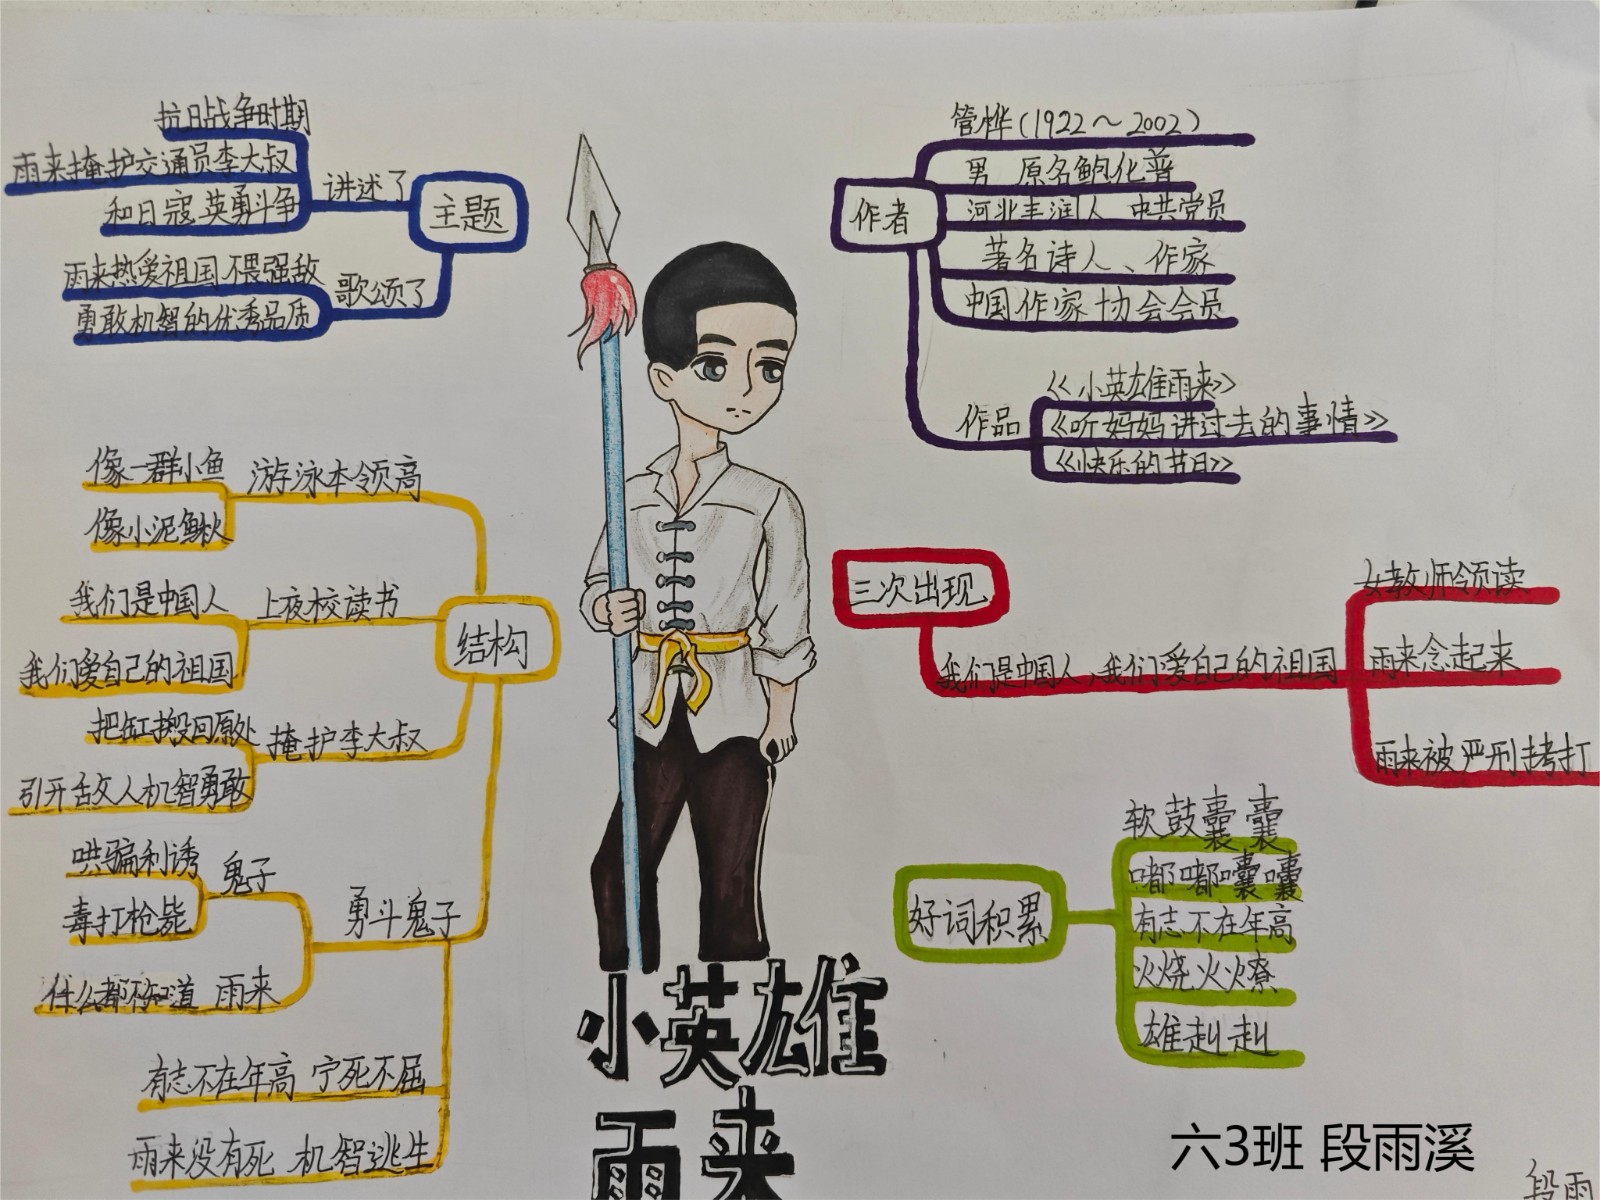 抗日战争时期
雨来掩护交通员李大叔
和日寇英勇斗争
讲述了
主题
雨来热爱祖国不畏强敌
勇敢机智的优秀品质
歌颂了
管桦(1922～2002)
男 原名鲍化普
河北丰润人 中共党员
著名诗人、作家
中国作家协会会员
作者
作品
《小英雄雨来》
《听妈妈讲过去的事情》
《快乐的节日》
像一群小鱼
像小泥鳅
游泳本领高
我们是中国人
我们爱自己的祖国
上夜校读书
结构
把缸搬回原处
引开敌人机智勇敢
掩护李大叔
哄骗利诱
毒打枪毙
鬼子
什么都不知道 雨来
勇斗鬼子
有志不在年高 宁死不屈
雨来没有死 机智逃生
三次出现
我们是中国人,我们爱自己的祖国
女教师领读
雨来念起来
雨来被严刑拷打
好词积累
软鼓囊囊
嘟嘟囔囔
有志不在年高
火烧火燎
雄赳赳
小英雄
雨来
六3班 段雨溪
段雨